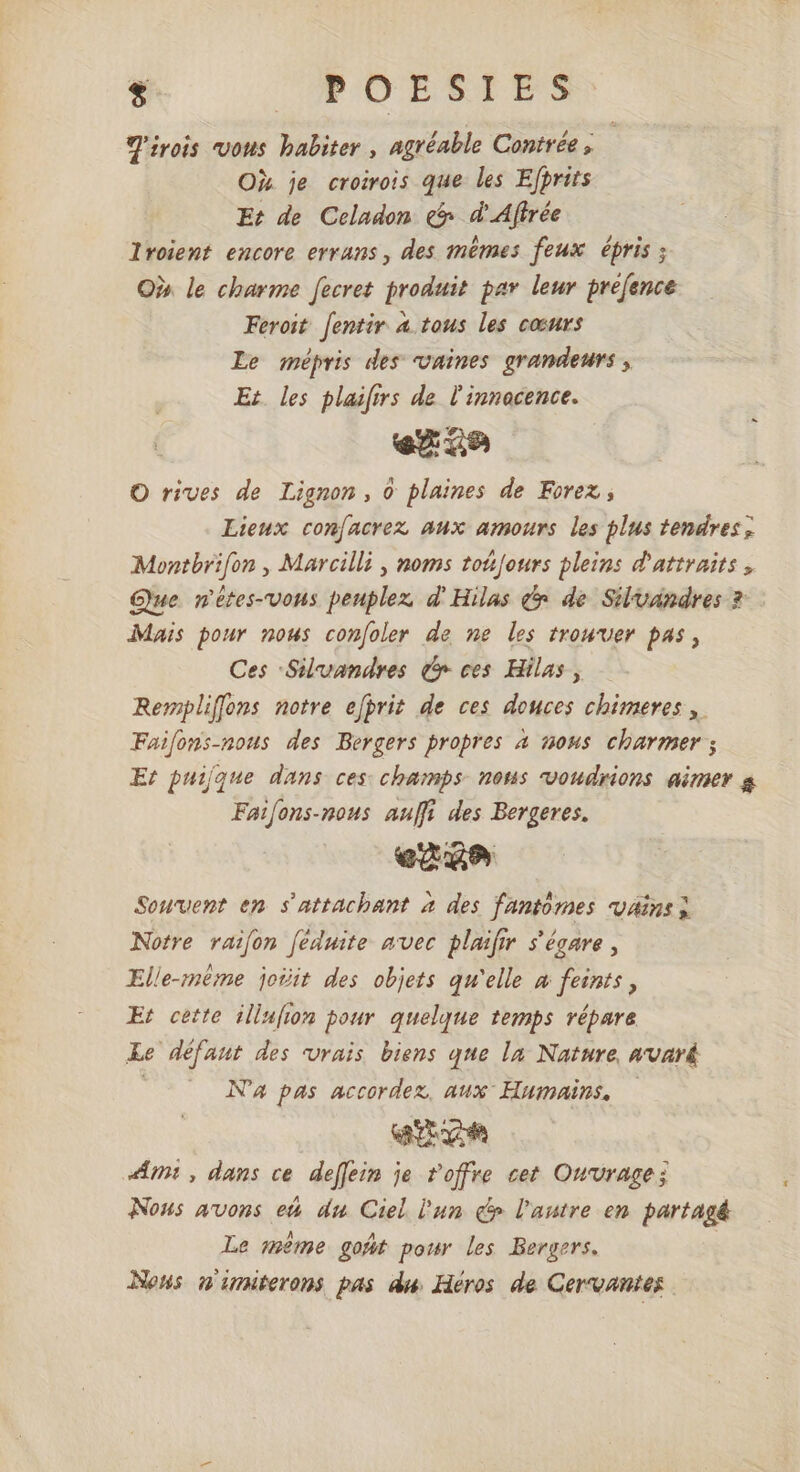 8 POESIES
J'irois vous habiter, agréable Contrée,
Où je croirois que les Eſprits
Et de Celadon & d'Aſtrée
Iroient encore errans, des mêmes feux épris ;
Où le charme ſecret produit par leur préſence
Feroit ſentir à tous les cœurs
Le mépris des vaines grandeurs,
Et les plaiſirs de l'innocence.
O rives de Lignon, ô plaines de Forez,
Lieux conſacrez aux amours les plus tendres,
Montbriſon, Marcilli, noms toûjours pleins d'attraits,
Que n'êtes-vous peuplez d'Hilas & de Silvandres ?
Mais pour nous conſoler de ne les trouver pas,
Ces Silvandres & ces Hilas,
Rempliſſons notre eſprit de ces douces chimeres,
Faiſons-nous des Bergers propres à nous charmer ;
Et puiſque dans ces champs nous voudrions aimer,
Faiſons-nous auſſi des Bergeres.
Souvent en s'attachant à des fantômes vains,
Notre raiſon ſéduite avec plaiſir s'égare,
Elle-même joüit des objets qu'elle a feints,
Et cette illuſion pour quelque temps répare
Le défaut des vrais biens que la Nature avare
N'a pas accordez aux Humains.
Ami, dans ce deſſein je t'offre cet Ouvrage ;
Nous avons eû du Ciel l'un & l'autre en partage
Le même goût pour les Bergers.
Nous n'imiterons pas du Héros de Cervantes